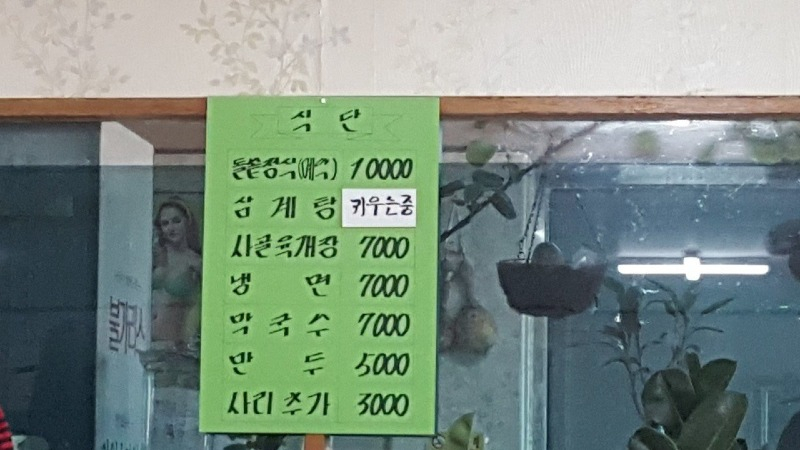 식 단
돌솥정식(예약) 10000
삼 계 탕 키우는중
사골육개장 7000
냉 면 7000
막 국 수 7000
만 두 5000
사리 추가 3000
불가리스